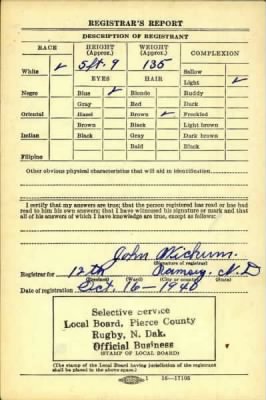 REGISTRAR'S REPORT
DESCRIPTION OF REGISTRANT
RACE HEIGHT (Approx.) WEIGHT (Approx.) COMPLEXION
White ✓ 5 ft. 9 135 Sallow
EYES HAIR Light ✓
Negro Blue ✓ Blonde Ruddy
Gray Red Dark
Oriental Hazel Brown ✓ Freckled
Brown Black Light brown
Indian Black Gray Dark brown
Bald Black
Filipino
Other obvious physical characteristics that will aid in identification
I certify that my answers are true; that the person registered has read or has had read to him his own answers; that I have witnessed his signature or mark and that all of his answers of which I have knowledge are true, except as follows:
John
(Signature of registrar)
Registrar for 12th Ramsey, N.D
(Precinct) (Ward) (City or county) (State)
Date of registration Oct. 16-1940
Selective Service
Local Board, Pierce County
Rugby, N. Dak.
Official Business
(STAMP OF LOCAL BOARD)
(The stamp of the Local Board having jurisdiction of the registrant
shall be placed in the above space.)
16-17105